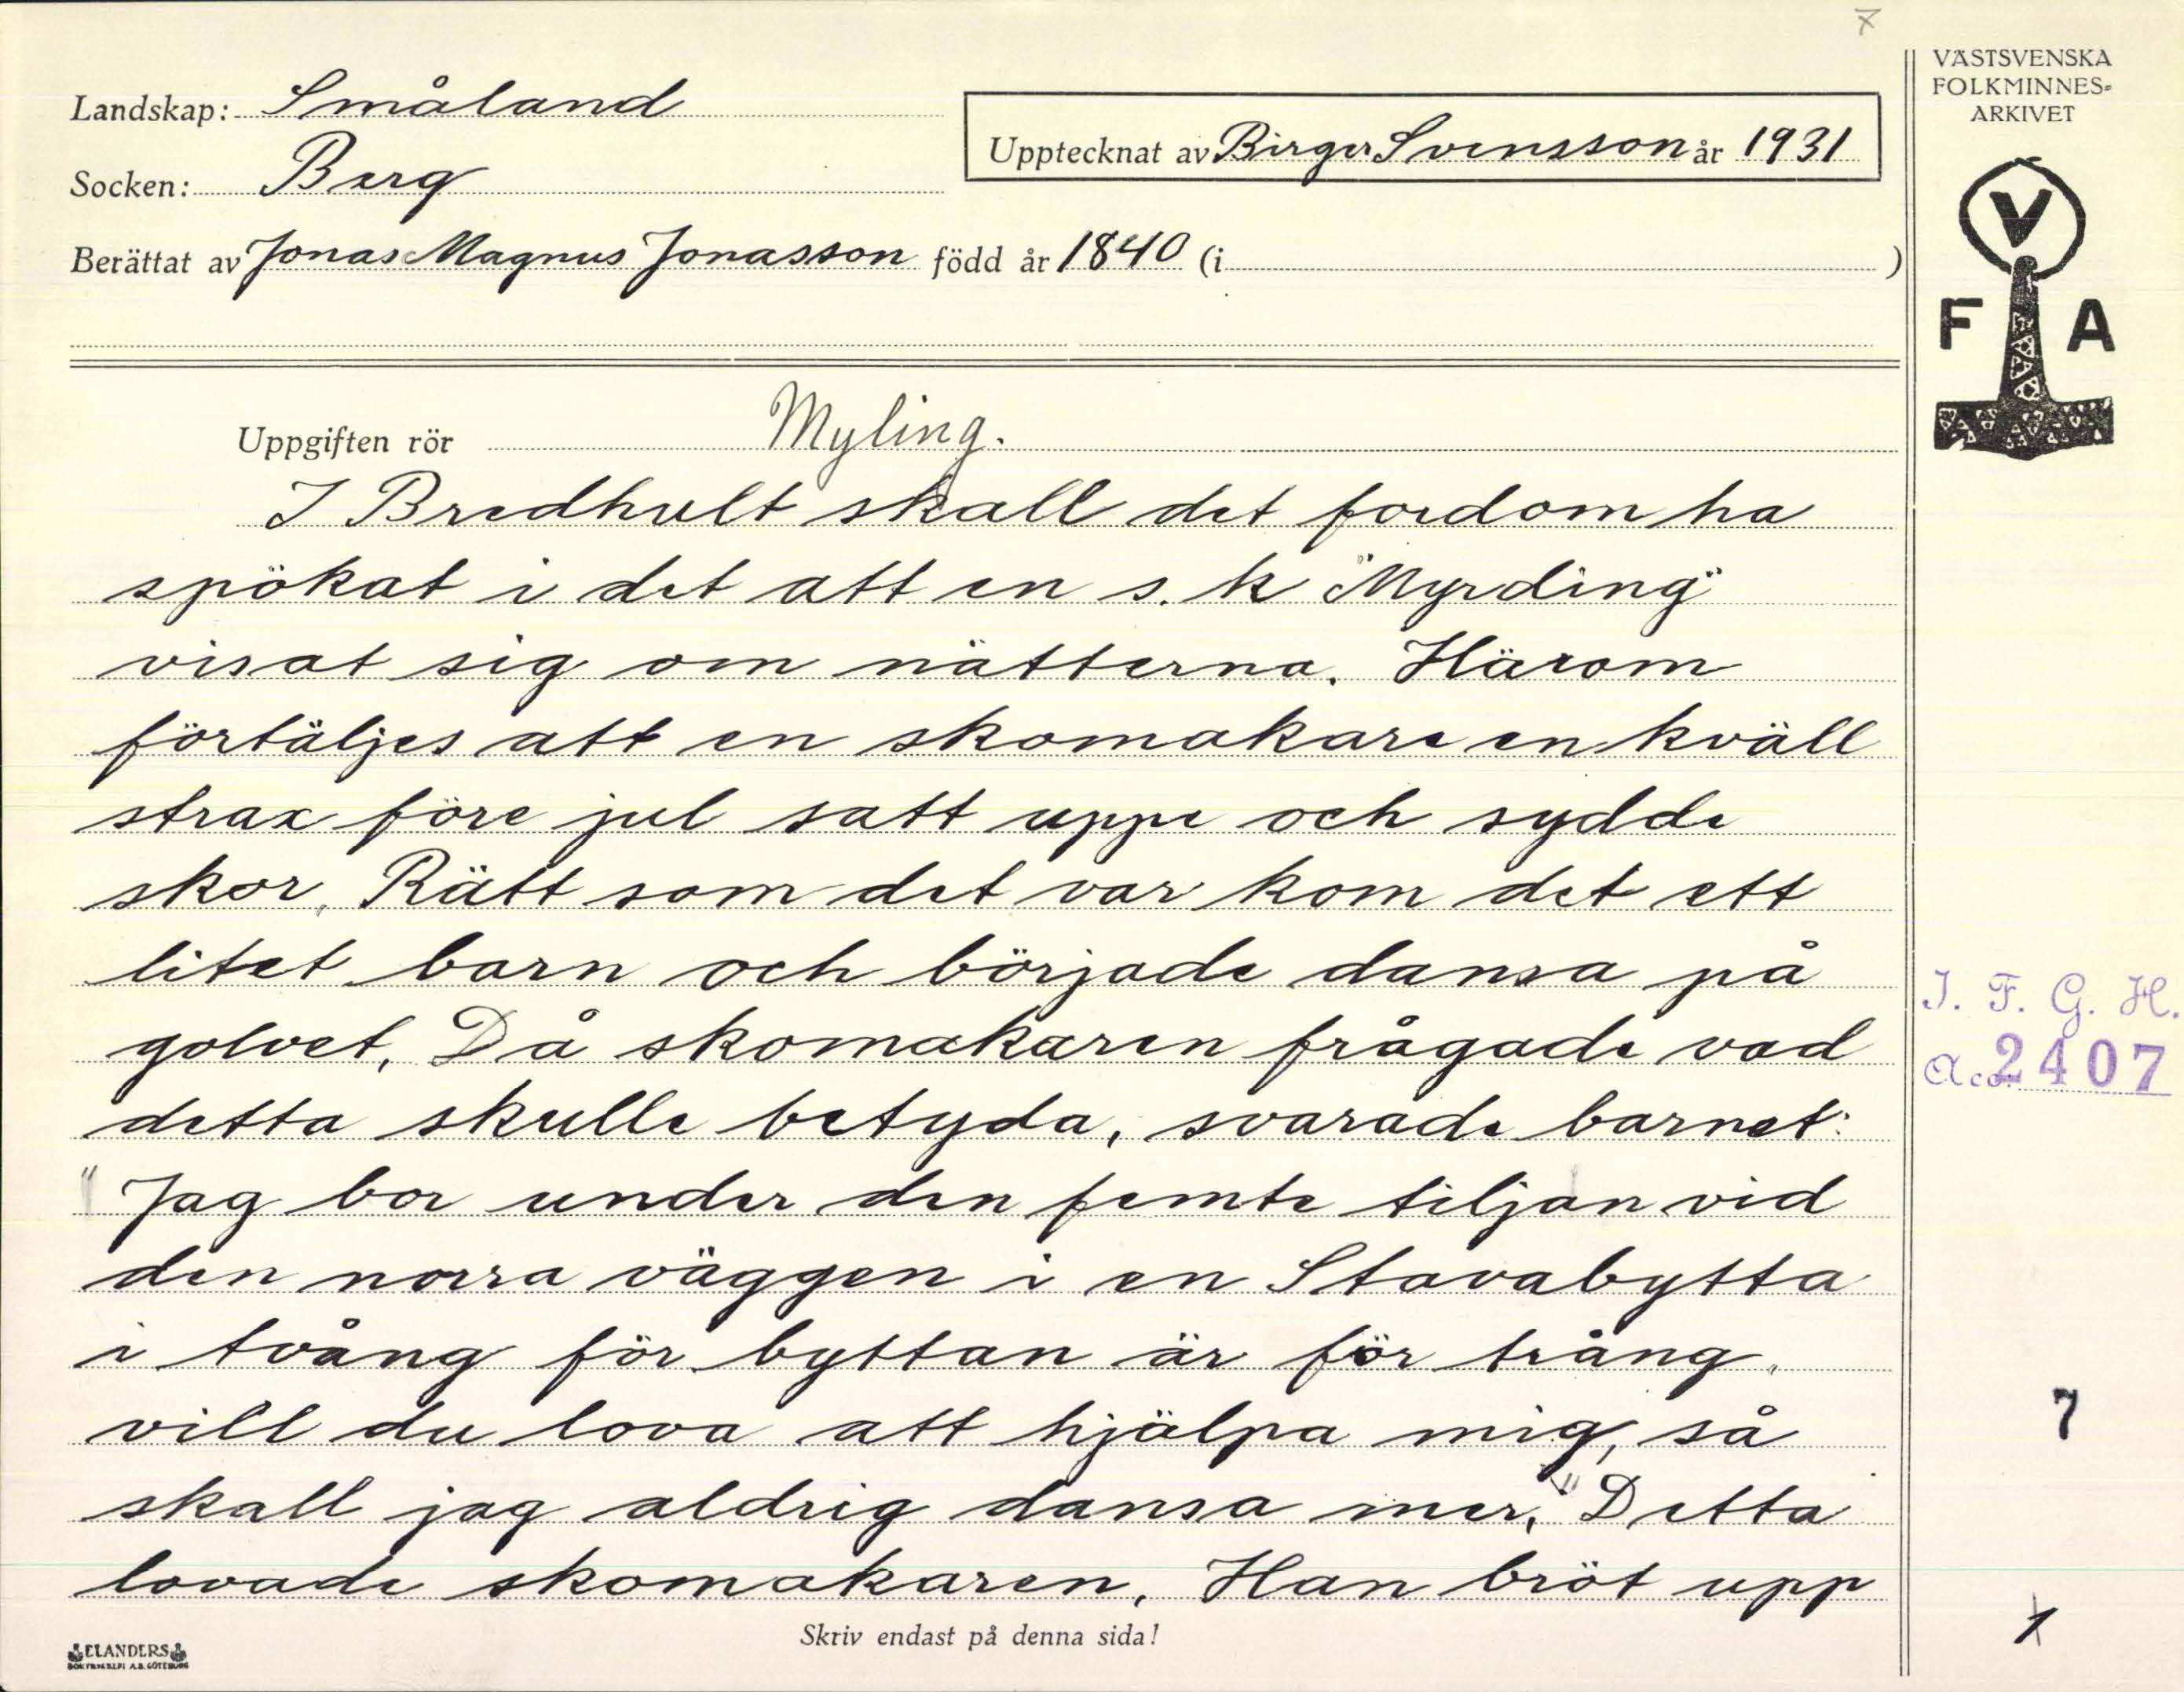 7
VÄSTSVENSKA
FOLKMINNES-
ARKIVET
Landskap: Småland
Upptecknat av Birger Svensson år 1931
Socken: Berg
Berättat av Jonas Magnus Jonasson född år 1840 (i )
V
F A
Uppgiften rör Myling.
I Bredhult skall det fordom ha
spökat i det att en s.k "Myrding"
visat sig om nätterna. Härom
förtäljes att en skomakare en kväll
strax före jul satt uppe och sydde
skor. Rätt som det var kom det ett
litet barn och började dansa på
golvet. Då skomakaren frågade vad
detta skulle betyda, svarade barnet:
"Jag bor under den femte tiljan vid
den norra väggen i en Stavabytta
i tvång för byttan är för trång.
vill du lova att hjälpa mig, så
skall jag aldrig dansa mer." Detta
lovade skomakaren. Han bröt upp
I. F. G. H.
Acc. 2407
7
1
Skriv endast på denna sida!
ELANDERS
BOKTRYCKERI A.B. GÖTEBORG